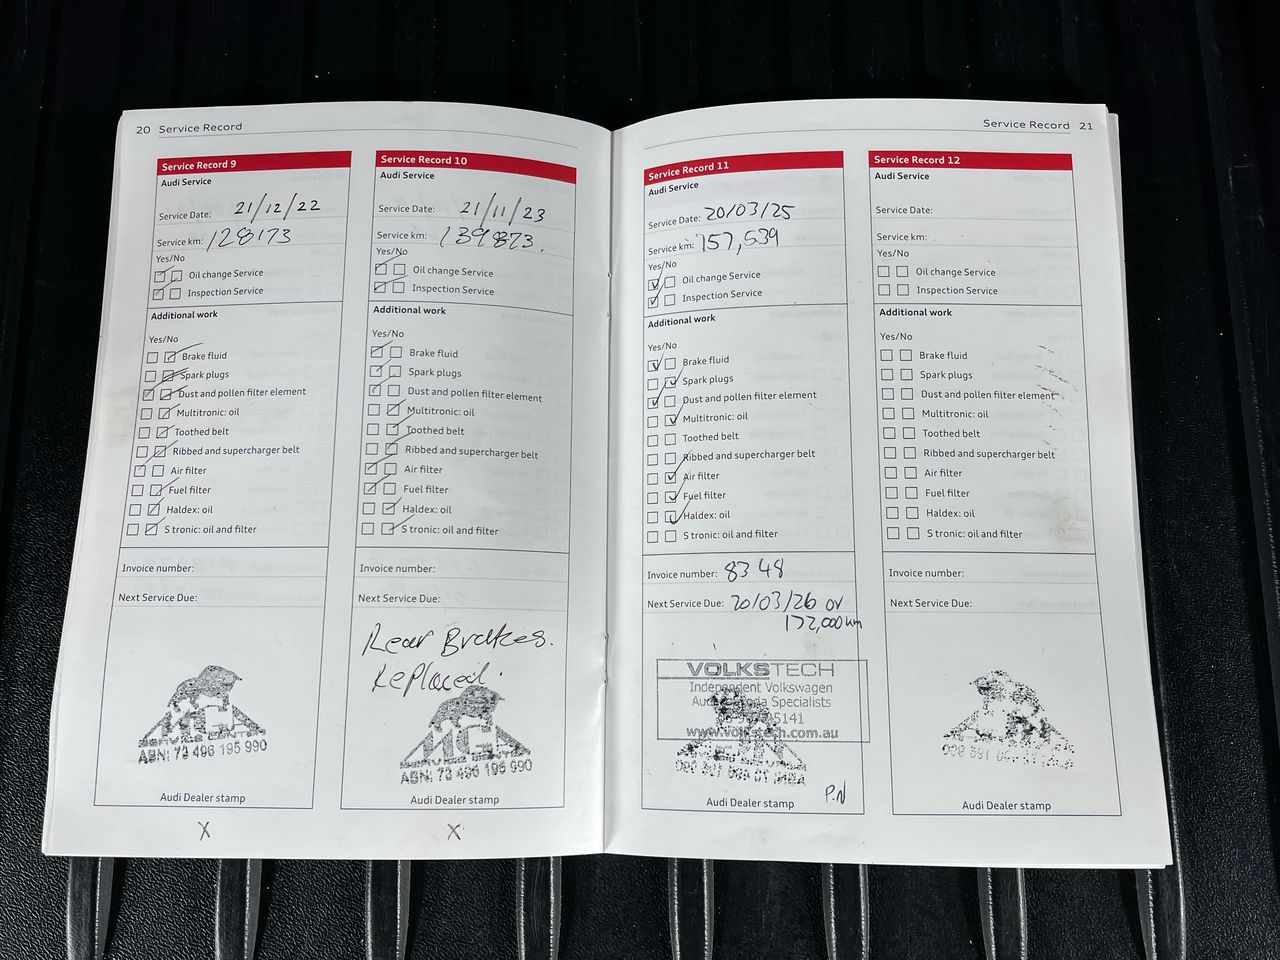 20 Service Record
Service Record 9
Audi Service
Service Date: 21/12/22
Service km: 128173
Yes/No
Oil change Service
Inspection Service
Additional work
Yes/No
Brake fluid
Spark plugs
Dust and pollen filter element
Multitronic: oil
Toothed belt
Ribbed and supercharger belt
Air filter
Fuel filter
Haldex: oil
S tronic: oil and filter
Invoice number:
Next Service Due:
SERVICE CENTRE
ABN: 73 496 195 990
Audi Dealer stamp
X
Service Record 10
Audi Service
Service Date: 21/11/23
Service km: 139873
Yes/No
Oil change Service
Inspection Service
Additional work
Yes/No
Brake fluid
Spark plugs
Dust and pollen filter element
Multitronic: oil
Toothed belt
Ribbed and supercharger belt
Air filter
Fuel filter
Haldex: oil
S tronic: oil and filter
Invoice number:
Next Service Due:
Rear Brakes.
Replaced.
ABN: 73 496 195 990
Audi Dealer stamp
X
Service Record 21
Service Record 11
Audi Service
Service Date: 20/03/25
Service km: 157,539
Yes/No
Oil change Service
Inspection Service
Additional work
Yes/No
Brake fluid
Spark plugs
Dust and pollen filter element
Multitronic: oil
Toothed belt
Ribbed and supercharger belt
Air filter
Fuel filter
Haldex: oil
S tronic: oil and filter
Invoice number: 8348
Next Service Due: 20/03/26 or
172,000km
VOLKSTECH
Independent Volkswagen
Audi Skoda Specialists
5141
www.volkstech.com.au
Audi Dealer stamp
P.N
Service Record 12
Audi Service
Service Date:
Service km:
Yes/No
Oil change Service
Inspection Service
Additional work
Yes/No
Brake fluid
Spark plugs
Dust and pollen filter element
Multitronic: oil
Toothed belt
Ribbed and supercharger belt
Air filter
Fuel filter
Haldex: oil
S tronic: oil and filter
Invoice number:
Next Service Due:
Audi Dealer stamp